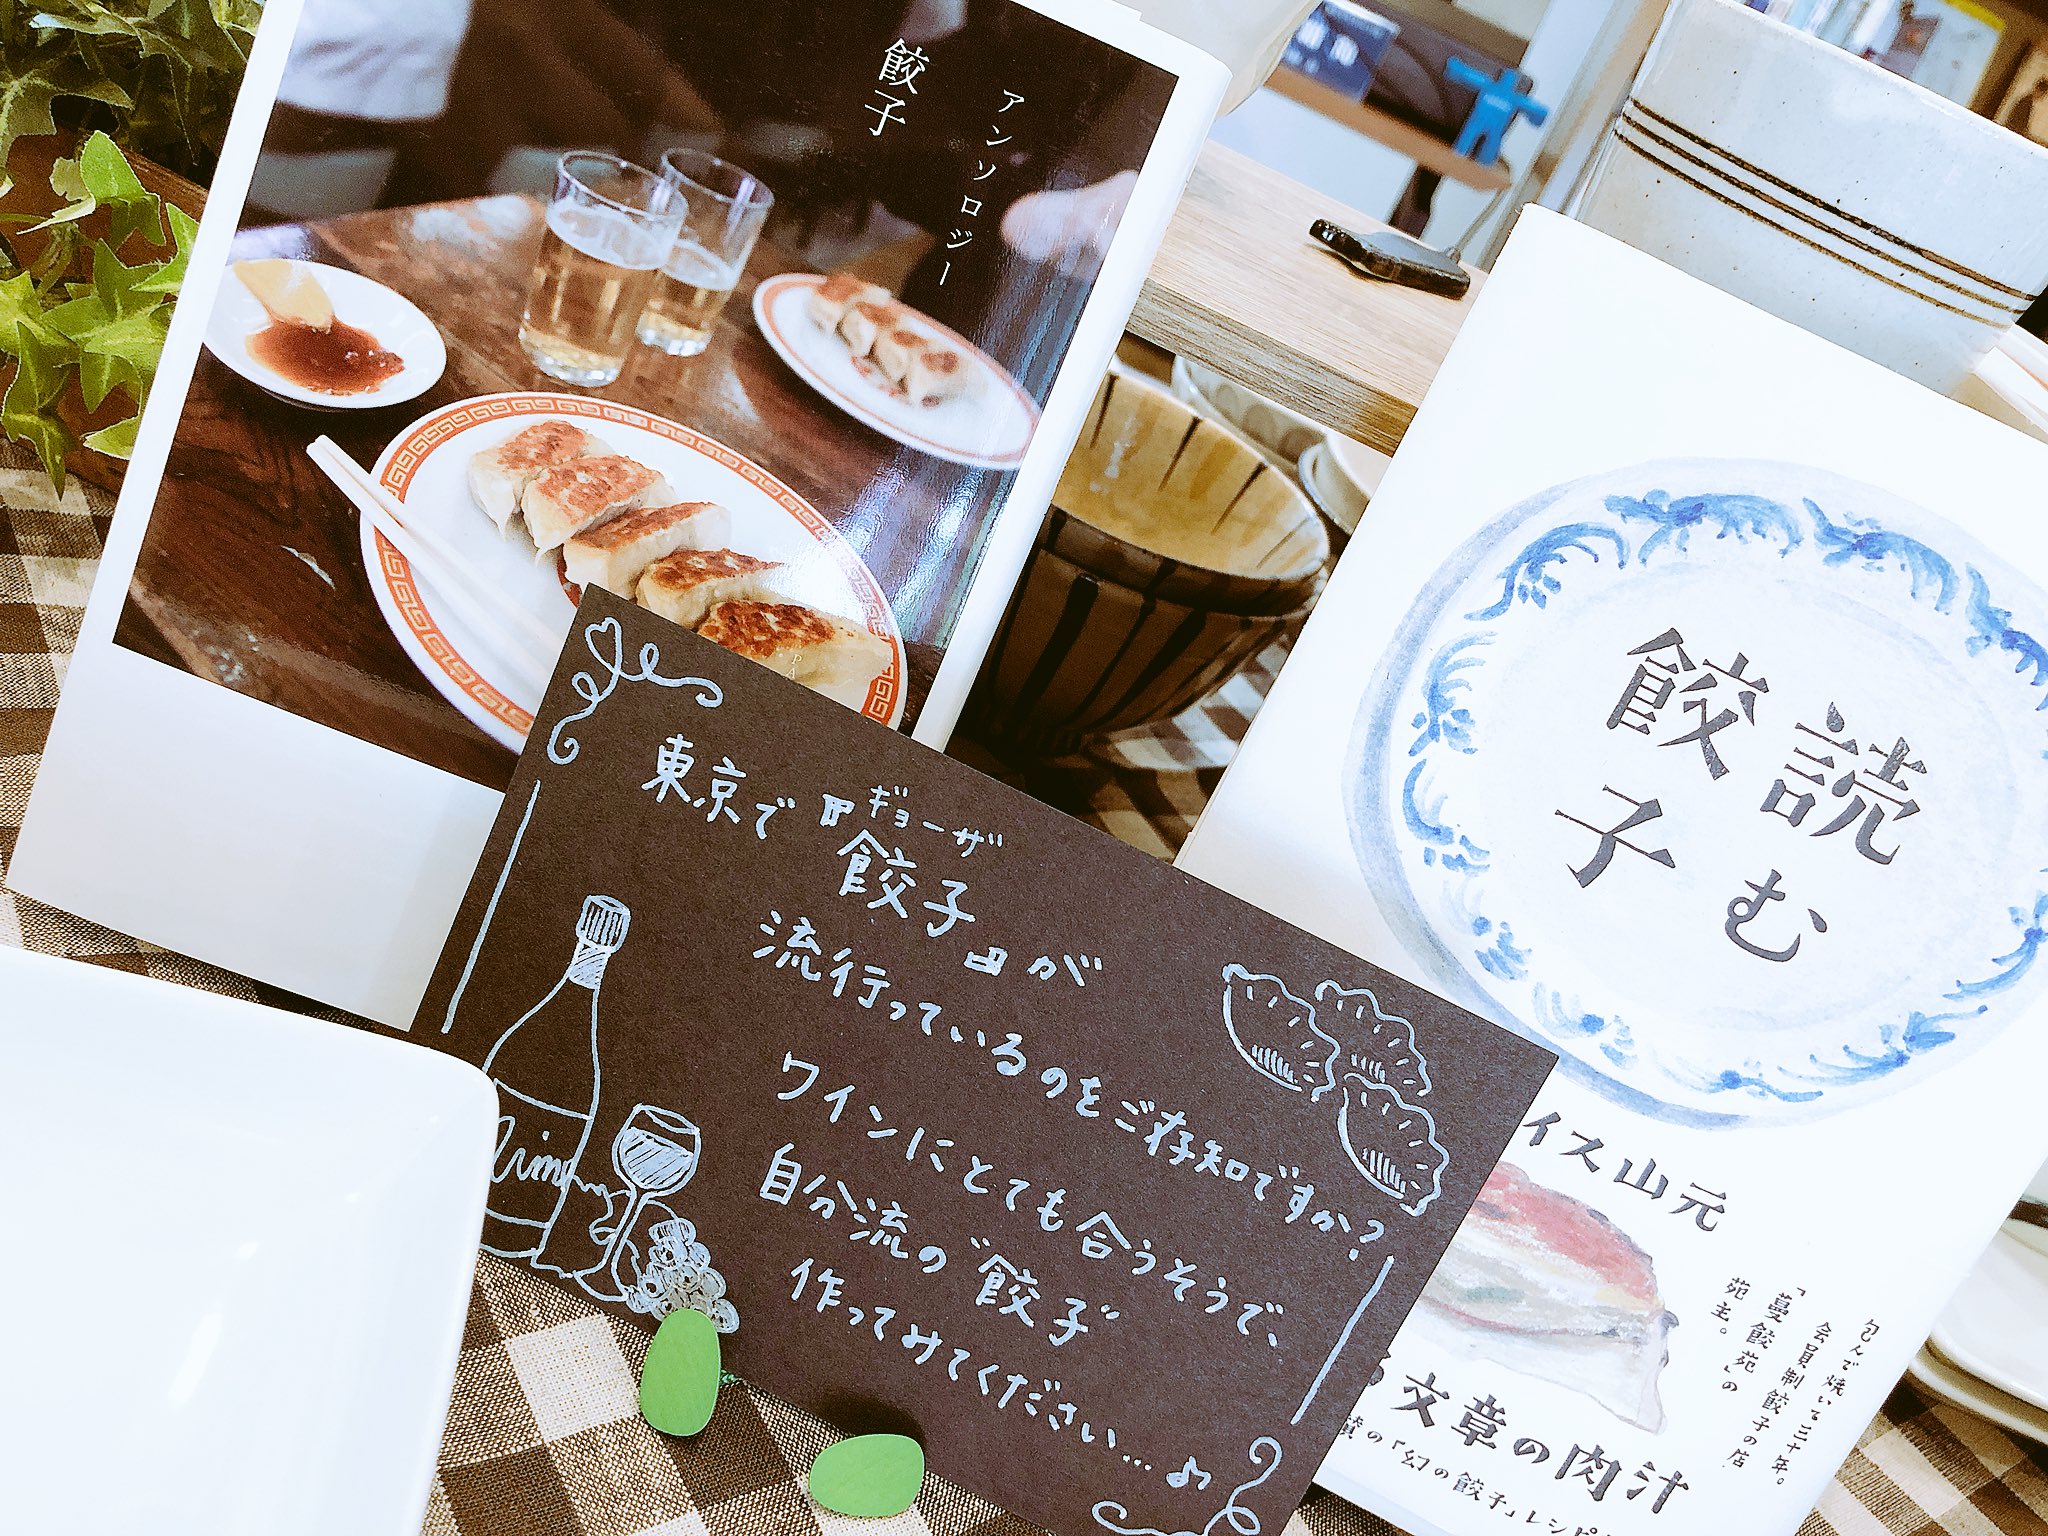 アンソロジー
餃子
東京で『餃子』が
ギョーザ
流行っているのをご存知ですか?
ワインにとても合うそうで、
自分流の“餃子”
作ってみてください…♪
読む
餃子
イス山元
包んで焼いて三十年。
会員制餃子の店
「蔓餃苑」の
苑主。
文章の肉汁
の「幻の餃子」レシピ